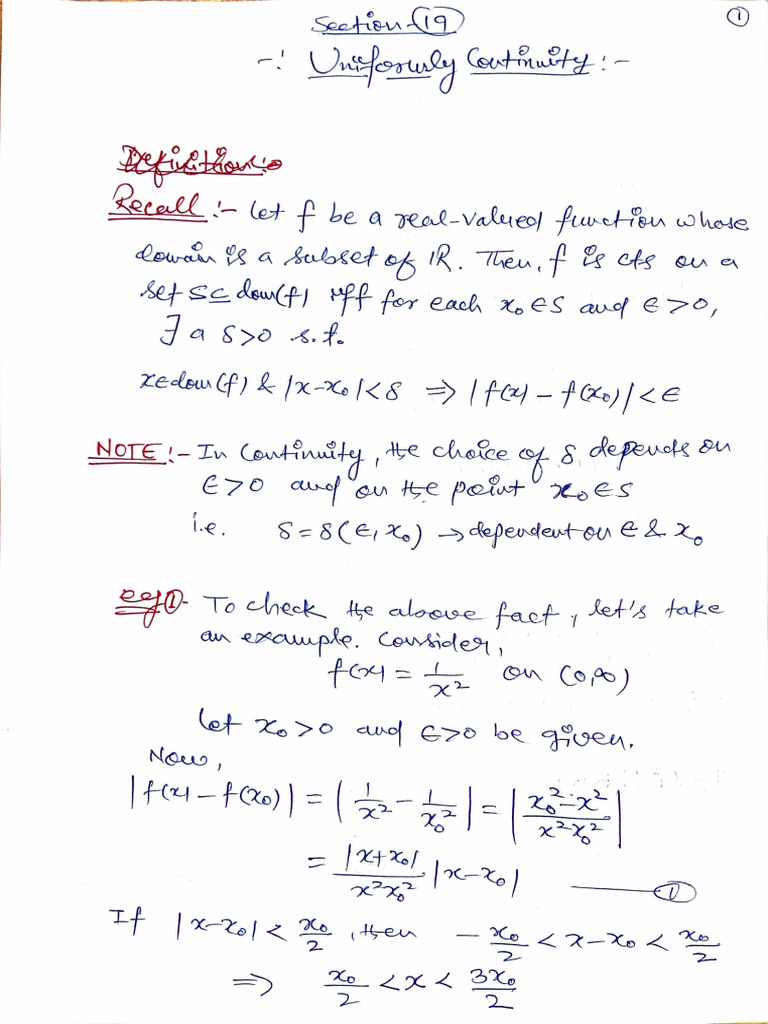 Section-19
①
-: Uniformly Continuity :-
Definition:-
Recall :- Let f be a real-valued function whose
domain is a subset of ℝ. Then, f is cts on a
set S⊆dom(f) iff for each x₀∈S and ϵ>0,
∃ a δ>0 s.t.
x∈dom(f) & |x-x₀|<δ ⇒ |f(x) - f(x₀)|<ϵ
NOTE :- In Continuity, the choice of δ depends on
ϵ>0 and on the point x₀∈S
i.e. δ=δ(ϵ, x₀) → dependent on ϵ & x₀
eg①- To check the above fact, let's take
an example. Consider,
f(x) = 1/x² on (0,∞)
Let x₀>0 and ϵ>0 be given.
Now,
|f(x) - f(x₀)| = |1/x² - 1/x₀²| = |(x₀²-x²)/(x²x₀²)|
= |x+x₀|/(x²x₀²) |x-x₀| —①
If |x-x₀| < x₀/2, then -x₀/2 < x-x₀ < x₀/2
⇒ x₀/2 < x < 3x₀/2